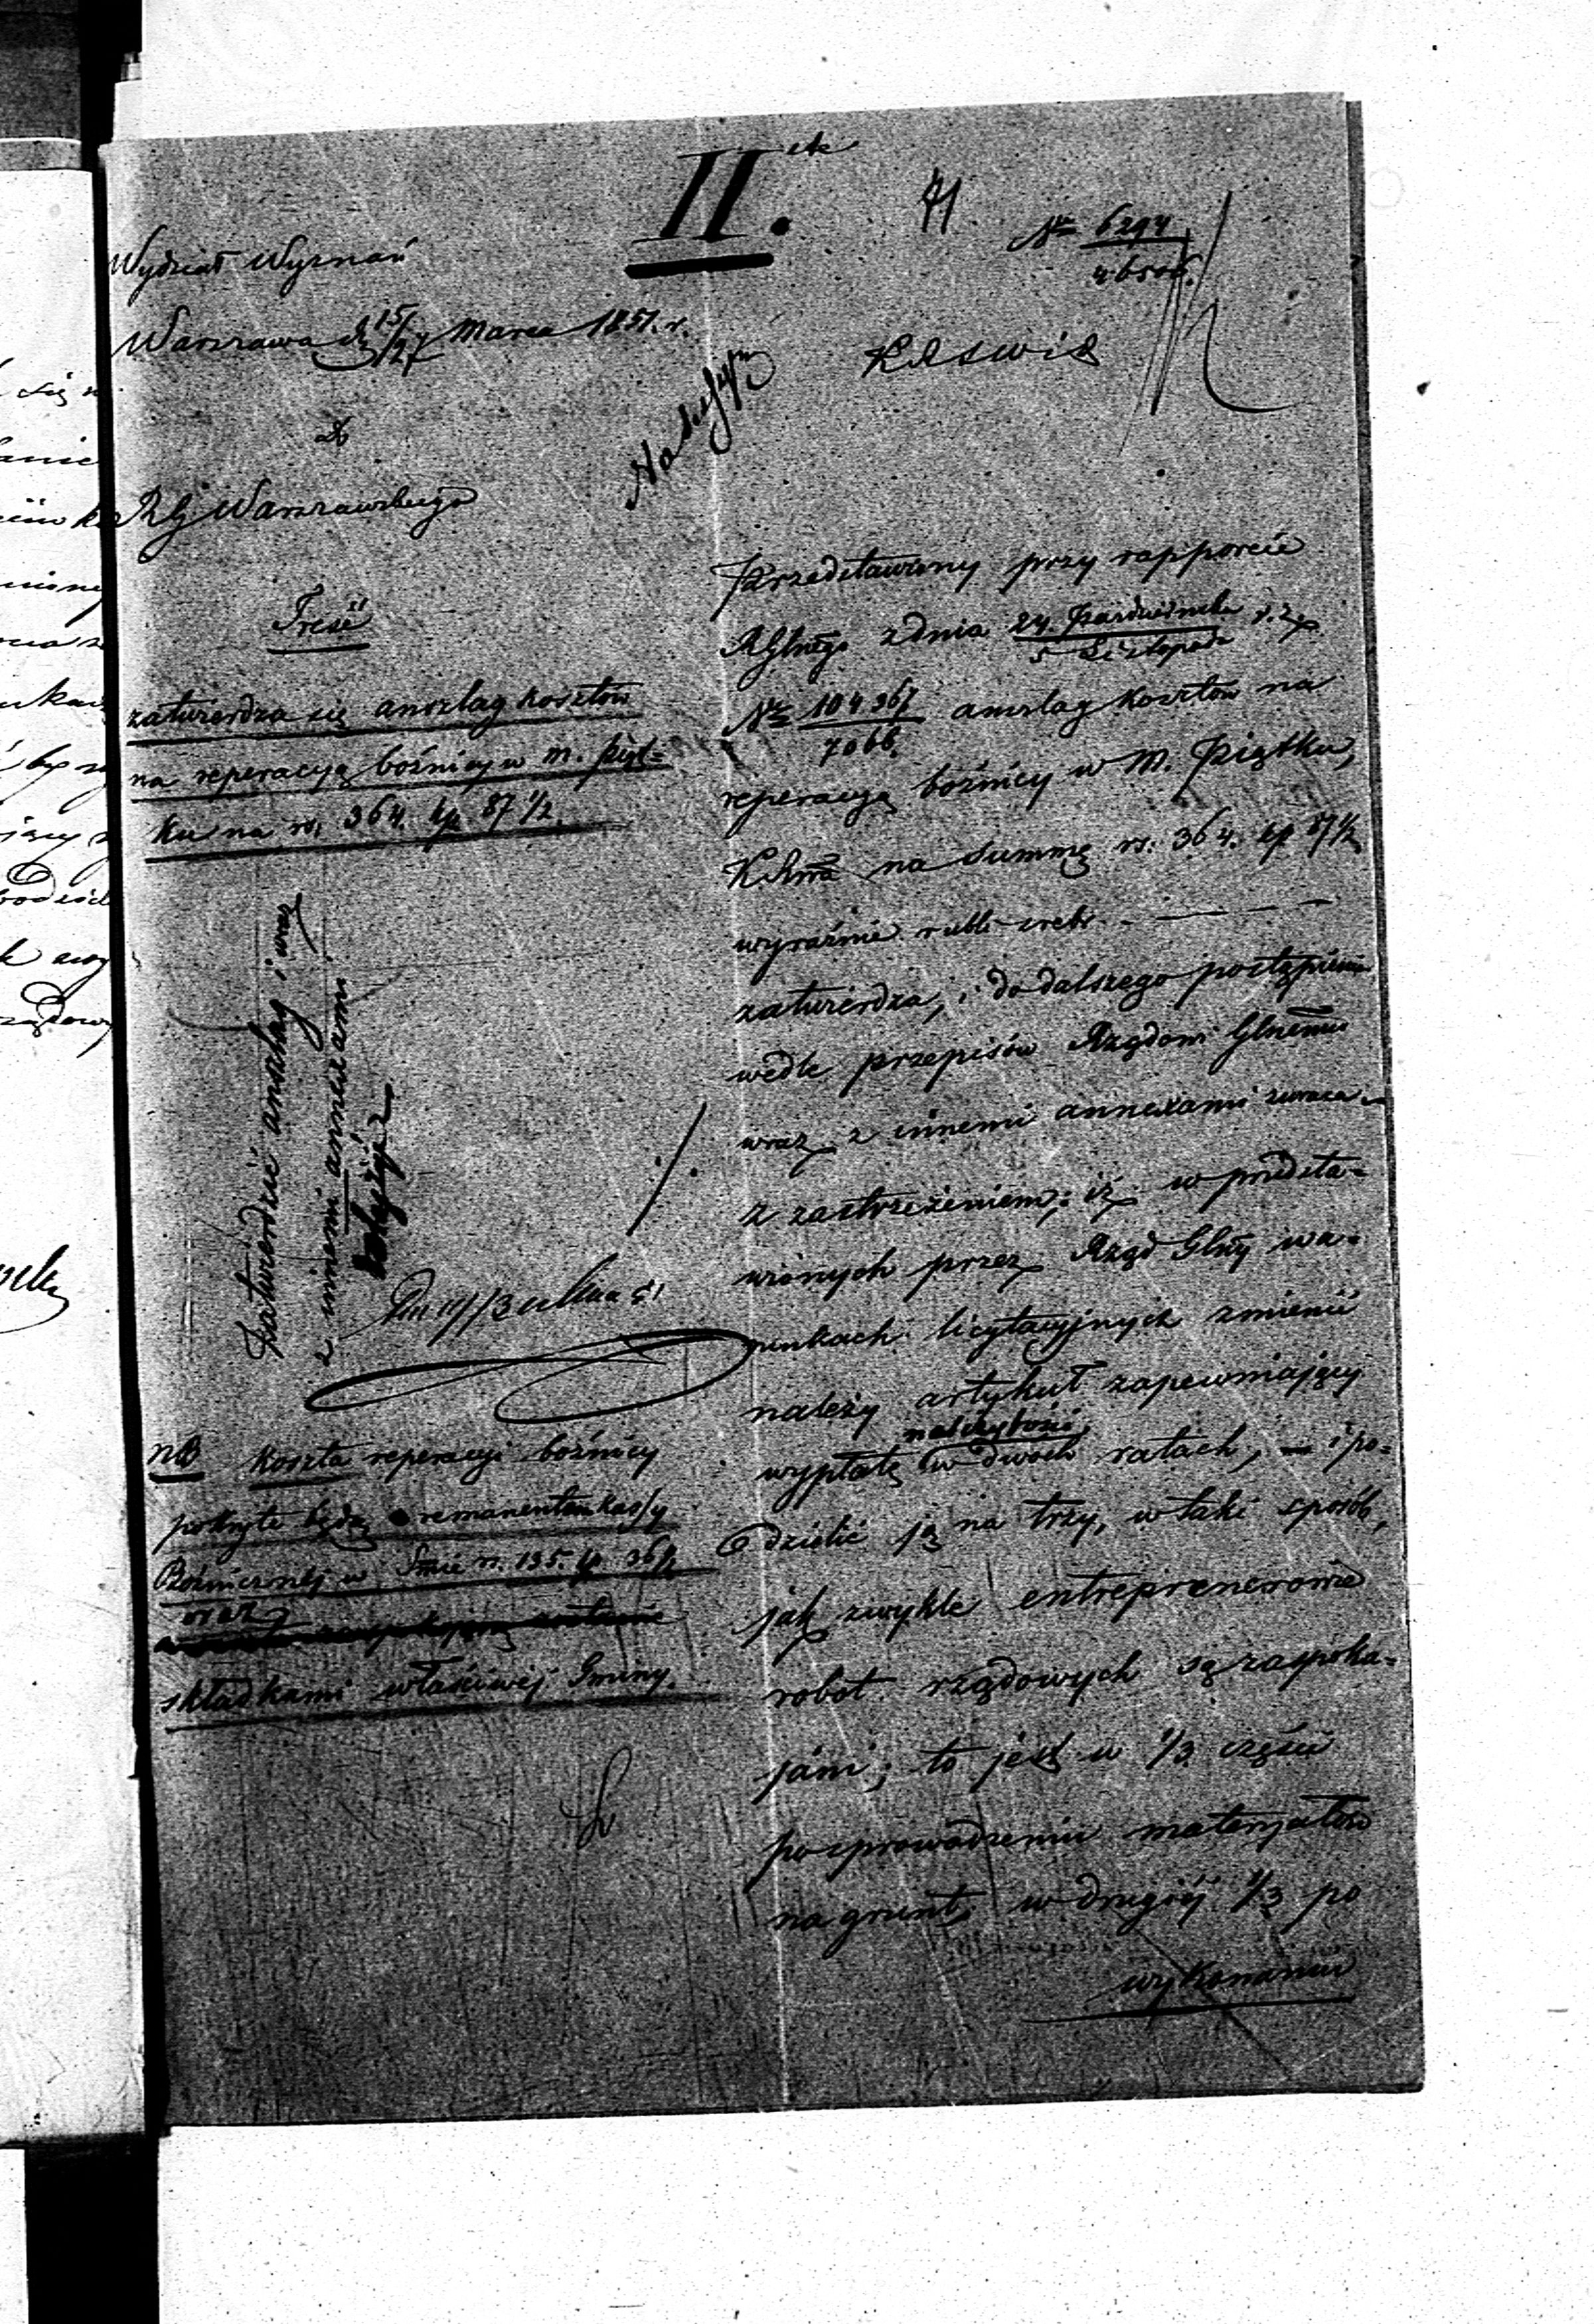 II.
41
Nr 6294
Wydział Wyznań
Warszawa d. 15/27 Marca 1851. r.
KRSWiD
Do
RG Warszawskiego
Treść
zatwierdza się anszlag kosztów
na reperacyą bóźnicy w m. Piąt=
ku na rs. 364. kp. 87 1/2.
Zatwierdzić anszlag i wraz
z innemi annexami
NB Koszta reperacyi bóźnicy
pokryte będą remanentem kassy
Bóżnicznej w Smie rs. 135. kp. 36 1/2
oraz
składkami właściwej Gminy.
Przedstawiony przy rapporcie
RGlnego z dnia 24. Października / 5 Listopada r. z.
Nr 104367 / 7066. anszlag kosztów na
reperacyą bóźnicy w M. Piątku,
KRzna na Summę rs. 364. kp. 87 1/2
wyraźnie rubli sreb. — — —
zatwierdza, i do dalszego postąpienia
wedle przepisów Rządowi Glnemu
wraz z innemi annexami zwraca
z zastrzeżeniem; iż w przedsta-
wionych przez Rząd Glny wa-
runkach licytacyjnych zmienić
należy artykuł zapewniający
należytości
wypłatę w dwóch ratach, — i po-
dzielić ją na trzy, w taki sposób,
jak zwykle entreprenerowie
robot rządowych są zaspoka-
jani; to jest w 1/3 części
po sprowadzeniu materyałów
na grunt, w drugiej 1/3 po
wykonaniu